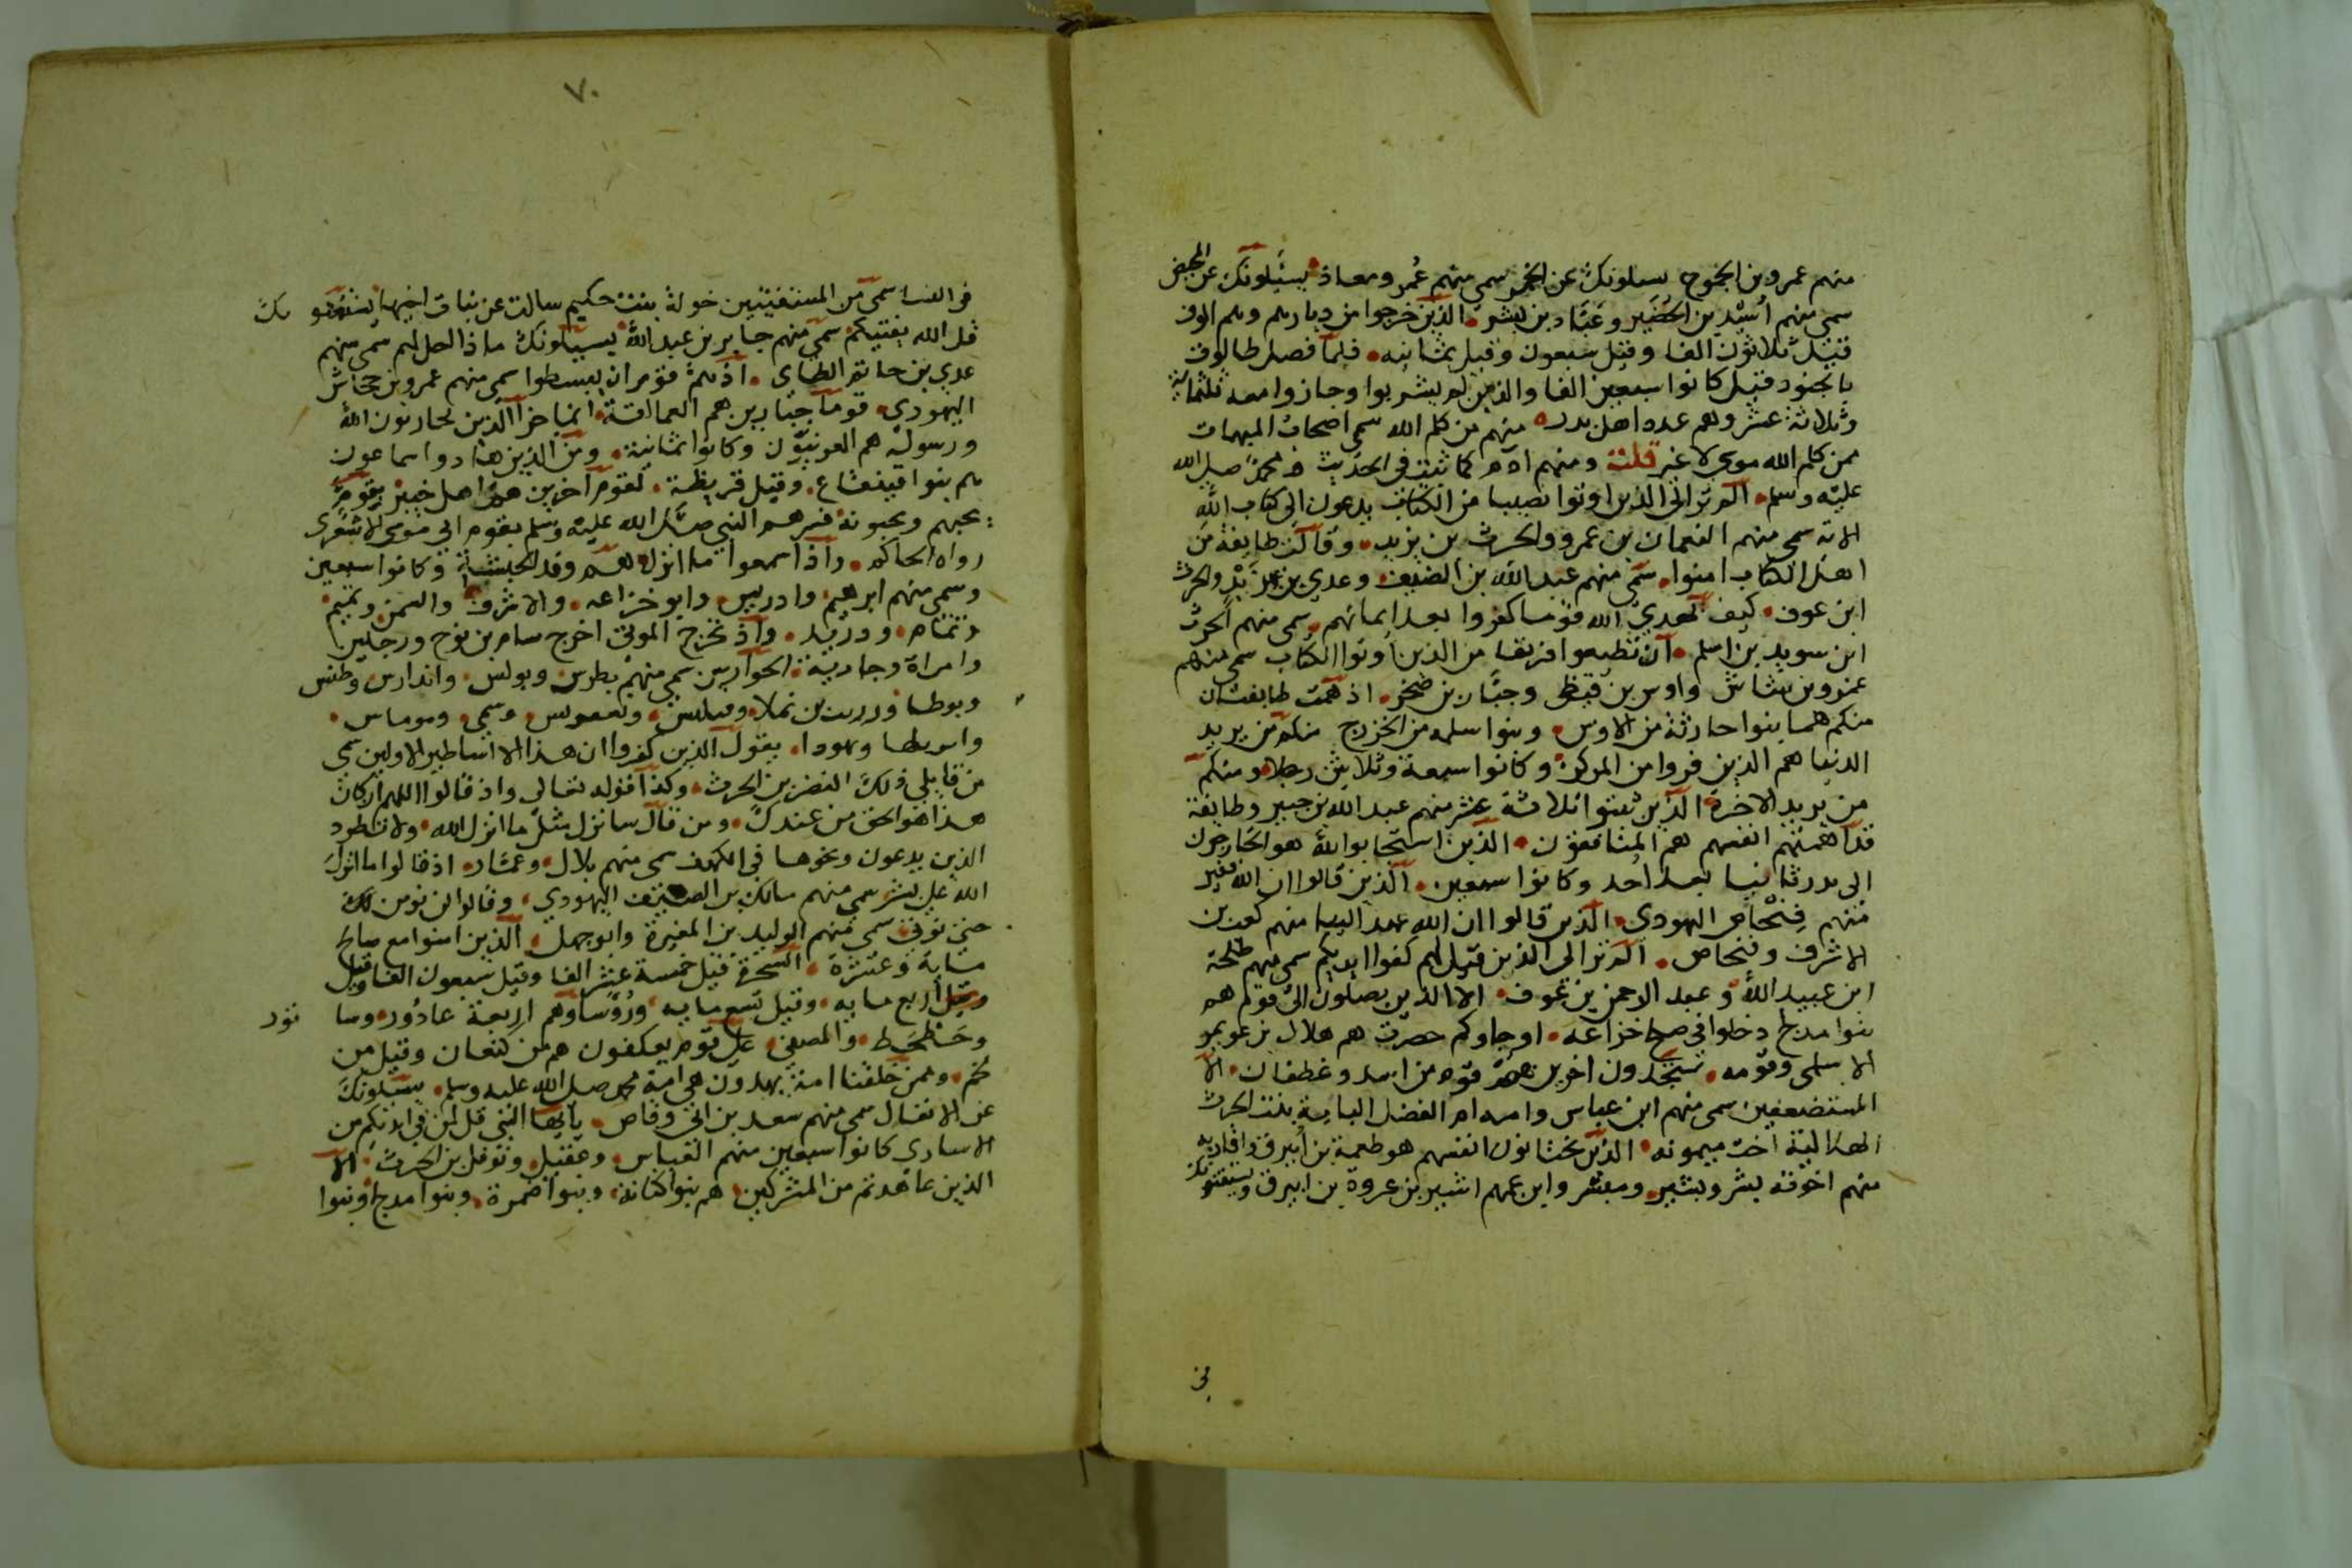 منهم عمرو بن الجموح يسلونك عن الخمر سمي منهم عمر ومعاذ يسئلونك عن المحيض
سمي منهم اسيد بن الحضير وعباد بن بشر الذين خرجوا من ديارهم وهم الوف
قيل ثلاثون الفا وقيل سبعون وقيل ثمانيه فلما فصل طالوت
بالجنود قيل كانوا سبعين الفا والذين لم يشربوا وجازوا معه ثلثمائة
وثلاثة عشر وهم عدد اهل بدر منهم من كلم الله سمي اصحاب المبهمات
ممن كلم الله موسى لا غير قلت ومنهم ادم كما ثبت في الحديث و محمد صلى الله
عليه وسلم الم تر الى الذين اوتوا نصيبا من الكتاب يدعون الى كتاب الله
الاية سمي منهم النعمان بن عمرو والحرث بن يزيد وقالت طايفة من
اهل الكتاب امنوا سمي منهم عبد الله بن الضيف وعدي بن زيد والحرث
ابن عوف كيف يهدي الله قوما كفروا بعد ايمانهم سمي منهم الحرث
ابن سويد بن اسلم ان تطيعوا فريقا من الذين اوتوا الكتاب سمي منهم
عمرو بن شاش واوس بن قيظي وجبار بن صخر اذ همت طايفتان
منكم هما بنوا حارثة من الاوس وبنوا سلمه من الخزرج منكم من يريد
الدنيا هم الذين فروا من المركز وكانوا سبعة وثلاثين رجلا ومنكم
من يريد الاخرة الذين ثبتوا ثلاثة عشر منهم عبد الله بن جبير وطايفة
قد اهمتهم انفسهم هم المنافقون الذين استجابوا لله هم الخارجون
الى بدر ثانيا بعد احد وكانوا سبعين الذين قالوا ان الله فقير
منهم فنحاص اليهودي الذين قالوا ان الله عهد الينا منهم كعب بن
الاشرف وفنحاص الم تر الى الذين قيل لهم كفوا ايديكم سمي منهم طلحة
ابن عبيد الله وعبد الرحمن بن عوف الا الذين يصلون الى قوم هم
بنوا مدلج دخلوا في صلح خزاعة او جاوكم حصرت هم هلال بن عويمر
الاسلمي وقومه ستجدون اخرين هم قوم من اسد وغطفان الا
المستضعفين سمي منهم ابن عباس وامه ام الفضل لبابة بنت الحرث
الهلالية اخت ميمونه الذين يختانون انفسهم هو طعمة بن ابيرق واقاربه
منهم اخوته بشر وبشير ومبشر وابن عمهم اسير بن عروة بن ابيرق ويستفتونك
في
٧٠
في النسا سمي من المستفتيين خولة بنت حكيم سالت عن بنات اخيها يستفتونك
قل الله يفتيكم سمي منهم جابر بن عبد الله يسئلونك ماذا احل لهم سمي منهم
عدي بن حاتم الطاي اذ هم قوم ان يبسطوا سمي منهم عمرو بن جحاش
اليهودي قوما جبارين هم العمالقة انما جزا الذين يحاربون الله
ورسوله هم العرنيون وكانوا ثمانية ومن الذين هادوا سماعون
هم بنوا قينقاع وقيل قريظة لقوم آخرين هم اهل خيبر بقوم
يحبهم ويحبونه فسرهم النبي صلى الله عليه وسلم بقوم ابي موسى الاشعري
رواه الحاكم واذا سمعوا ما انزل هم وفد الحبشة وكانوا سبعين
وسمي منهم ابرهيم وادريس وابو خزاعه والاشرف وايمن وتميم
وتمام ودريد واذ تخرج الموتى اخرج سام بن نوح ورجلين
وامراة وجارية الحواريين سمي منهم بطرس وبولس واندارس
من قايلي ذلك النضر بن الحرث وكذا قوله تعالى واذ قالوا اللهم ان كان
هذا هو الحق من عندك ومن قال سانزل مثل ما انزل الله ولا تطرد
الذين يدعون ونحوها في الكهف سمي منهم بلال وعمار اذ قالوا ما انزل
الله على بشر سمي منهم مالك بن الصيف اليهودي وقالوا لن نومن لك
حتى نوتى سمي منهم الوليد بن المغيرة وابو جهل الذين امنوا مع صالح
ماية وعشرة السحرة قيل خمسة عشر الفا وقيل سبعون الفا وقيل
وقيل اربع مايه وقيل تسع مايه وروساوهم اربعة عادور وسا تور
وحطحط والمصفى على قوم يعكفون هم من كنعان وقيل من
لخم وممن خلقنا امة يهدون هي امة محمد صلى الله عليه وسلم يسئلونك
عن الانفال سمي منهم سعد بن ابي وقاص يا ايها النبي قل لمن في ايديكم من
الاسارى كانوا سبعين منهم العباس وعقيل ونوفل بن الحرث الا
الذين عاهدتم من المشركين هم بنوا كنانة وبنوا ضمرة وبنوا مدلج وبنوا